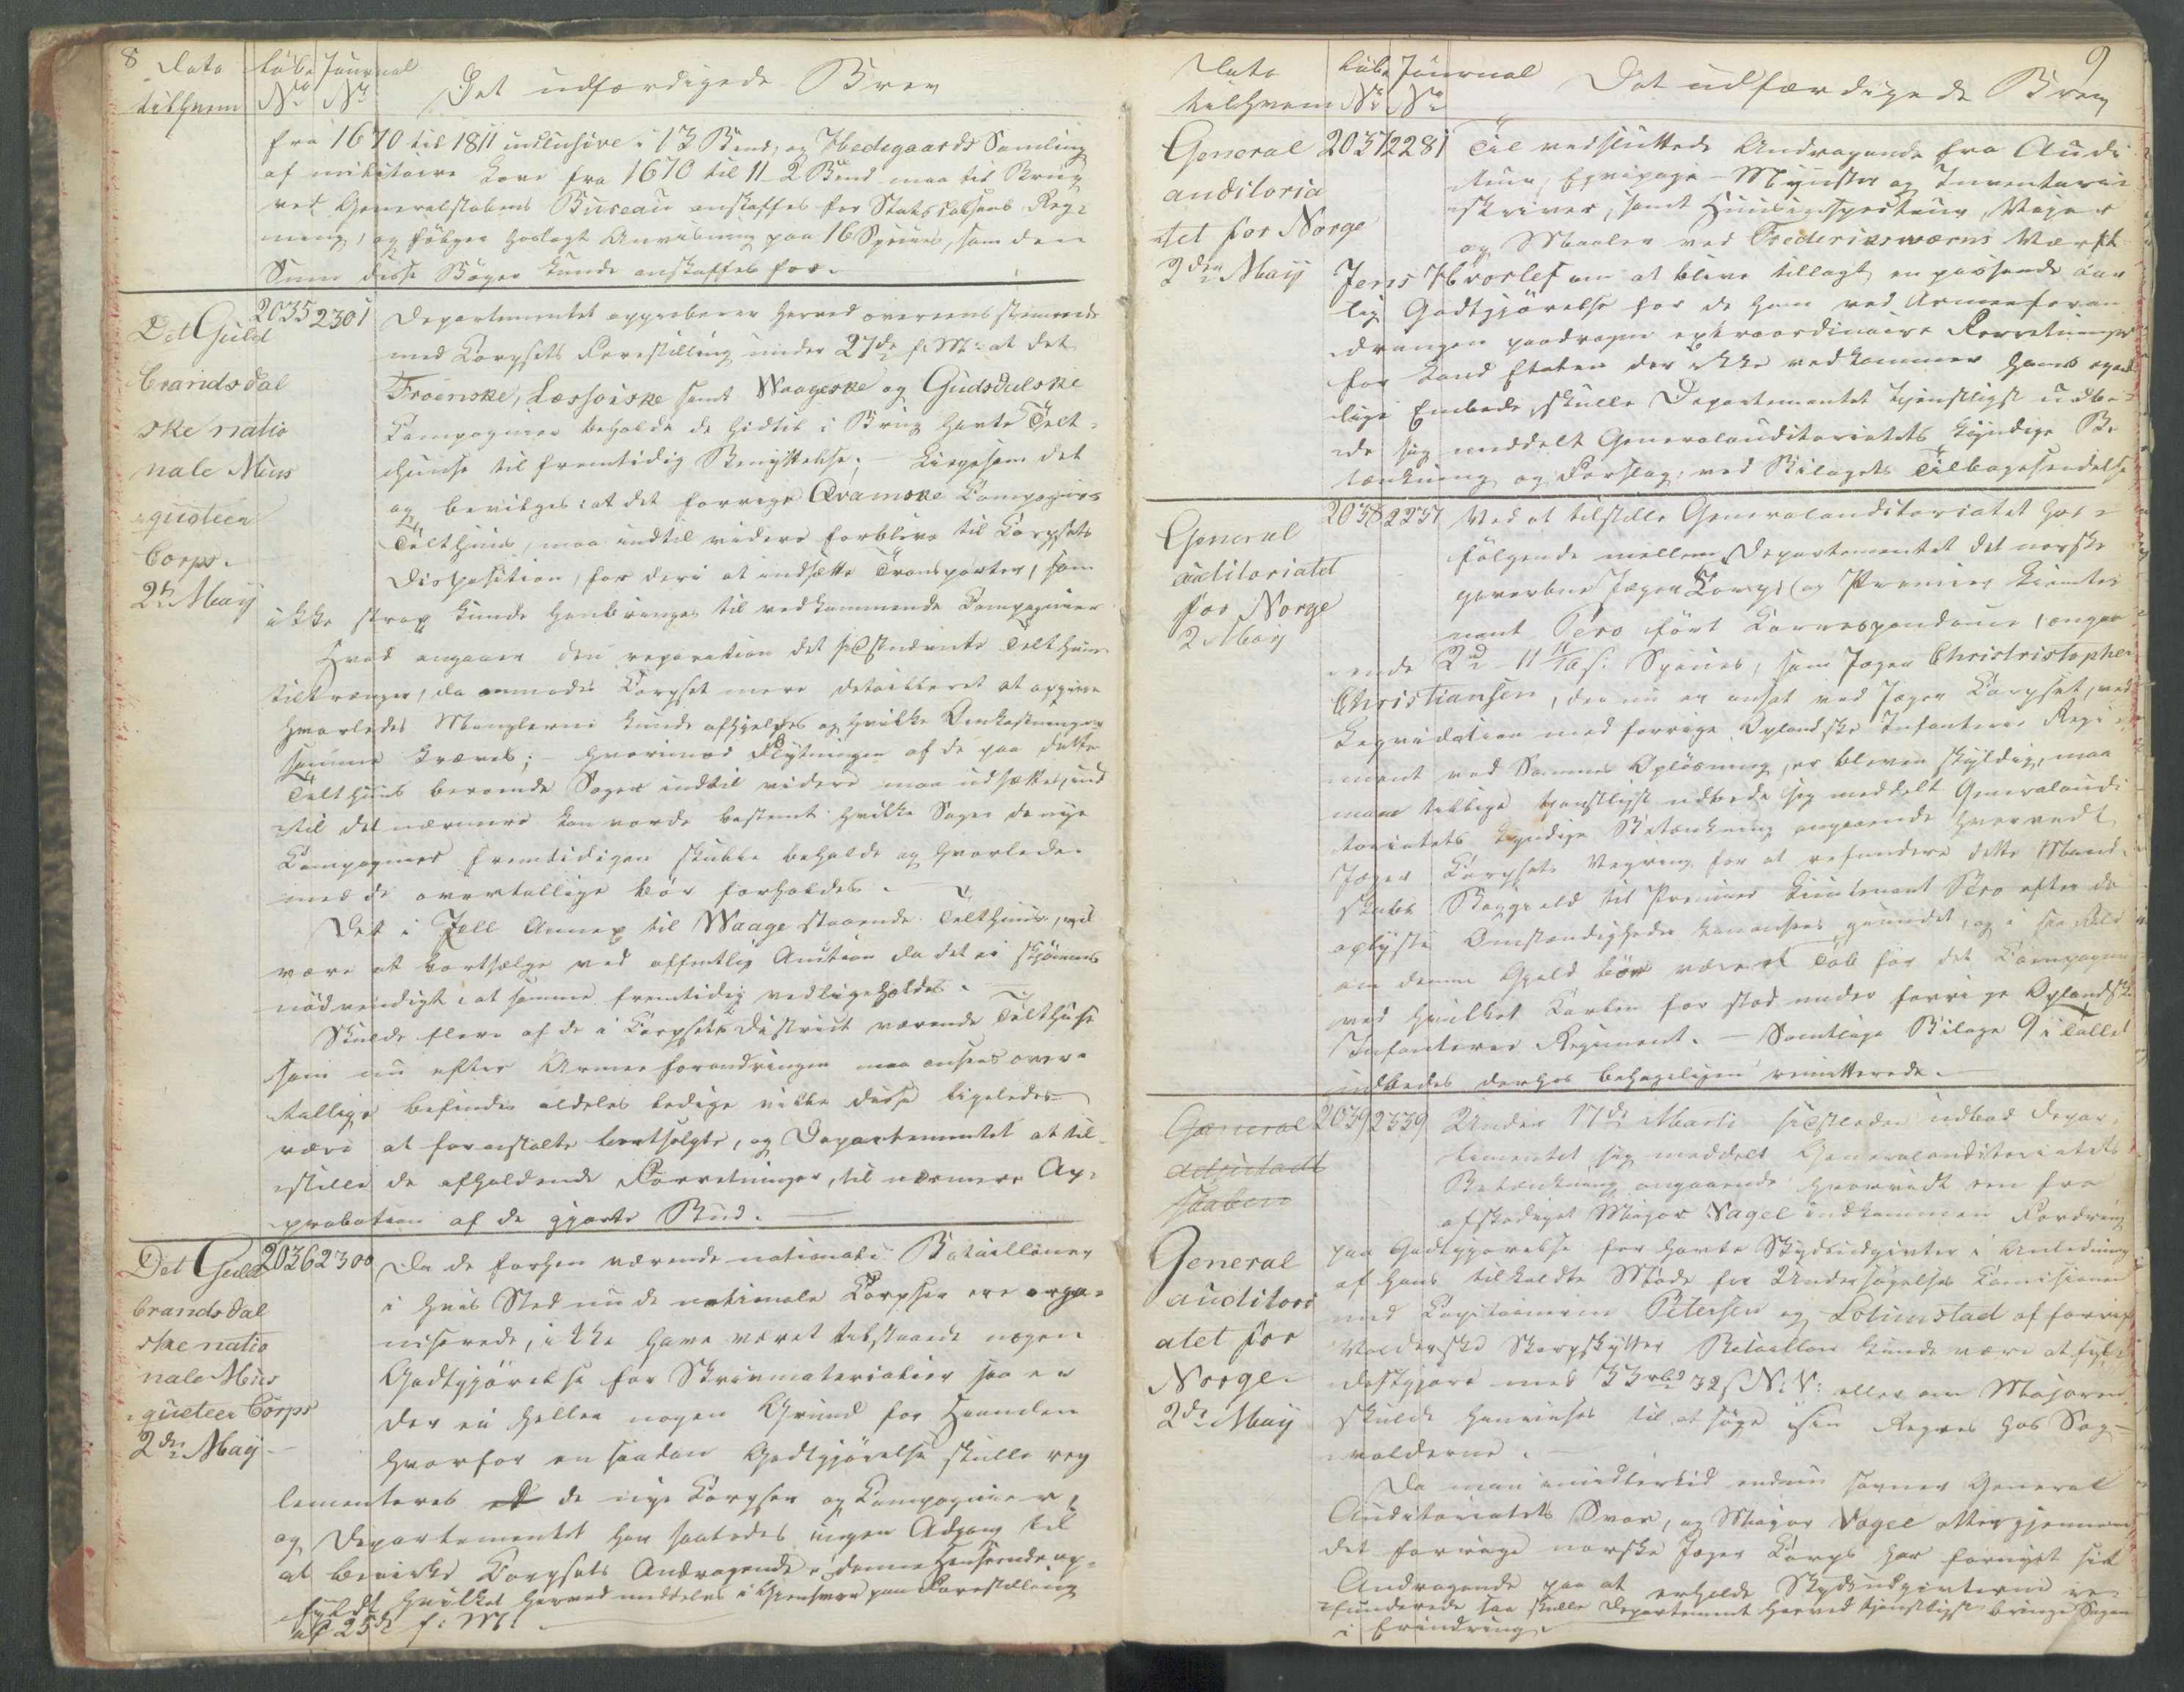 8
Dato Löbe Journal
tilhvem No No Det udfærdigede Brev
fra 1670 til 1811 inclusive i 13 Bind, og Hedegaards Samling
af militaire Love fra 1670 til 11 2 Bind maa til Brug
ved Generalstabens Bureau anskaffes for Statscassens Reg-
ning, og fölger hoslagt Anvisning paa 16 Species, som den
Sum disse Böger kunde anskaffes for.
Det Guld
brandsdal
ske natio
nale Mus
queteer
Corps.
2den May
2035 2301 Departementet approberer herved overeensstemmende
med Corpsets Forestilling under 27de f: M: at det
Froenske, Læssöiske samt Waageske og Gudsdalske
Compagnier beholde de hidtil i Brug havte Telt-
huuse til fremtidig Benyttelse; ligesom det
og bevilges: at det forrige Qvamske Compagnies
Telthuus, maa indtil videre forblive til Corpsets
Disposition, for deri at indsætte Transporter, som
ikke strax kunde henbringes til vedkommende Compagnier
Hvad angaaer den reparation det Telthuus
tiltrænger, da anmodes Corpset mere detailleret at opgive
hvorledes Manglerne kunde afhjelpes og hvilke Omkostninger
samme kræves; hvorimod Flytningen af de paa dette
Telthuus beroende Sager indtil videre maa udsættes, ind
til det nærmere kan vorde bestemt hvilke Sager de nye
Compagnier fremtidigen skulle beholde og hvorledes
med de overtallige bör forholdes.
Det i Jell Annex til Waage staaende Telthuus, vil
være at bortsælge ved offentlig Auction da det ei skjönnes
nödvendigt: at samme fremtidig vedligeholdes.
Skulde flere af de i Corpsets District værende Telthuse
som nu efter Armeeforandringen maa ansees over-
tallige befindes aldeles ledige ville disse ligeledes
være at foranstalte bortsolgte, og Departementet at til-
stille de afholdende Forretninger, til nærmere Ap-
probation af de gjorte Bud.
Det Guld
brandsdal
ske natio
nale Mus
queteer Corps
2den May
2036 2300 Da de forhen værende nationale Batailloner
i hvis Sted nu de nationale Corpser ere orga-
niserede, ikke have været tilstaaede nogen
Godtgjörelse for Skrivmaterialier saa er
der ei heller nogen Grund for Haanden
hvorfor en saadan Godtgjörelse skulle reg
lementeres de nye Corpser og Compagnier,
og Departementet har saaledes ingen Adgang til
at bevirke Corpsets Andragende i denne Henseende op-
fyldt hvilket herved meddeles i Giensvar paa Forestilling
af 25de f: M:
9
Dato Löbe Journal
tilhvem No No Det udfærdigede Brev
General
auditoria
tet for Norge
2den May
2037 2281 Til vedsluttede Andragende fra Audi
teur, Eqvipage-Mynster og Inventarie
skriver, samt Huusinspecteur, Veier
og Maaler ved Frederiksværns Værft
Jens Hvoslef om at blive tillagt en passende aar
lig Godtgjörelse for de ham ved Armeeforan
dringen paadragne extraordinaire Forretninger
for Land Etaten der ikke vedkommer hans egent
lige Embede, skulle Departementet tjenstligst udbe-
de sig meddelt Generalauditoriatets kyndige Be
tænkning og Forslag, ved Bilagets Tilbagesendelse
General
auditoriatet
for Norge
2 May
2038 2237 Ved at tilstille Generalauditoriatet hos-
fölgende mellem Departementet det norske
gevorbne Jæger Corps og Premier Lieute
nant Pero fört Correspondance, angaa
ende 2rd 11 s: Species, som Jæger Christristopher
Christiansen, der nu er ansat ved Jæger Corpset, ved
Leqvidation med forrige Oplandske Infanterie Regi-
ment ved Sammes Oplösning, er bleven skyldig, maa
man tillige tjenstligst udbede sig meddelt Generalaudi
toriatets kyndige Betænkning angaaende hvorvidt
Jæger Corpsets Vegring for at refundere dette Mand-
skabs Gield til Premier Lieutenant Pero efter de
oplyste Omstændigheder kan ansees grundet, og i saa Fald
om denne Gjeld bör være et Tab for det Compagnie
ved hvilket Karlen for stod under forrige Oplandske
Infanterie Regiment. Samtlige Bilage 9 i Tallet
udbedes derhos behageligen remitterede.
General
adjutant
staben
General
auditori
atet for
Norge
2den May
2039 2339 Under 17de Marti udbad Depar-
tementet sig meddelt Generalauditoriatets
Betænkning angaaende hvorvidt en fra
afskediget Major Vagel indkommen Fordring
paa Godtgjörelse for havte Skydsudgivter i Anledning
af hans tilkaldte Möde for Undersögelses Comissionen
med Capitainerne Petersen og Lolimstad af forrige
Valdersske Skarpskytter Bataillon kunde være at fyl-
destgjöre med 33 rbd 32 s N: V: eller om Majoren
skulde henvises til at söge sin Regres hos Sag-
volderne.
Da man imidlertid endnu savner General
Auditoriatets Svar, og Major Vagel atter gjennem
det forrige norske Jæger Corps har fornyet sit
Andragende paa at erholde Skydsudgivterne re-
funderede saa skulle Departementet herved tjenstligst bringe Sagen
i Erindring.